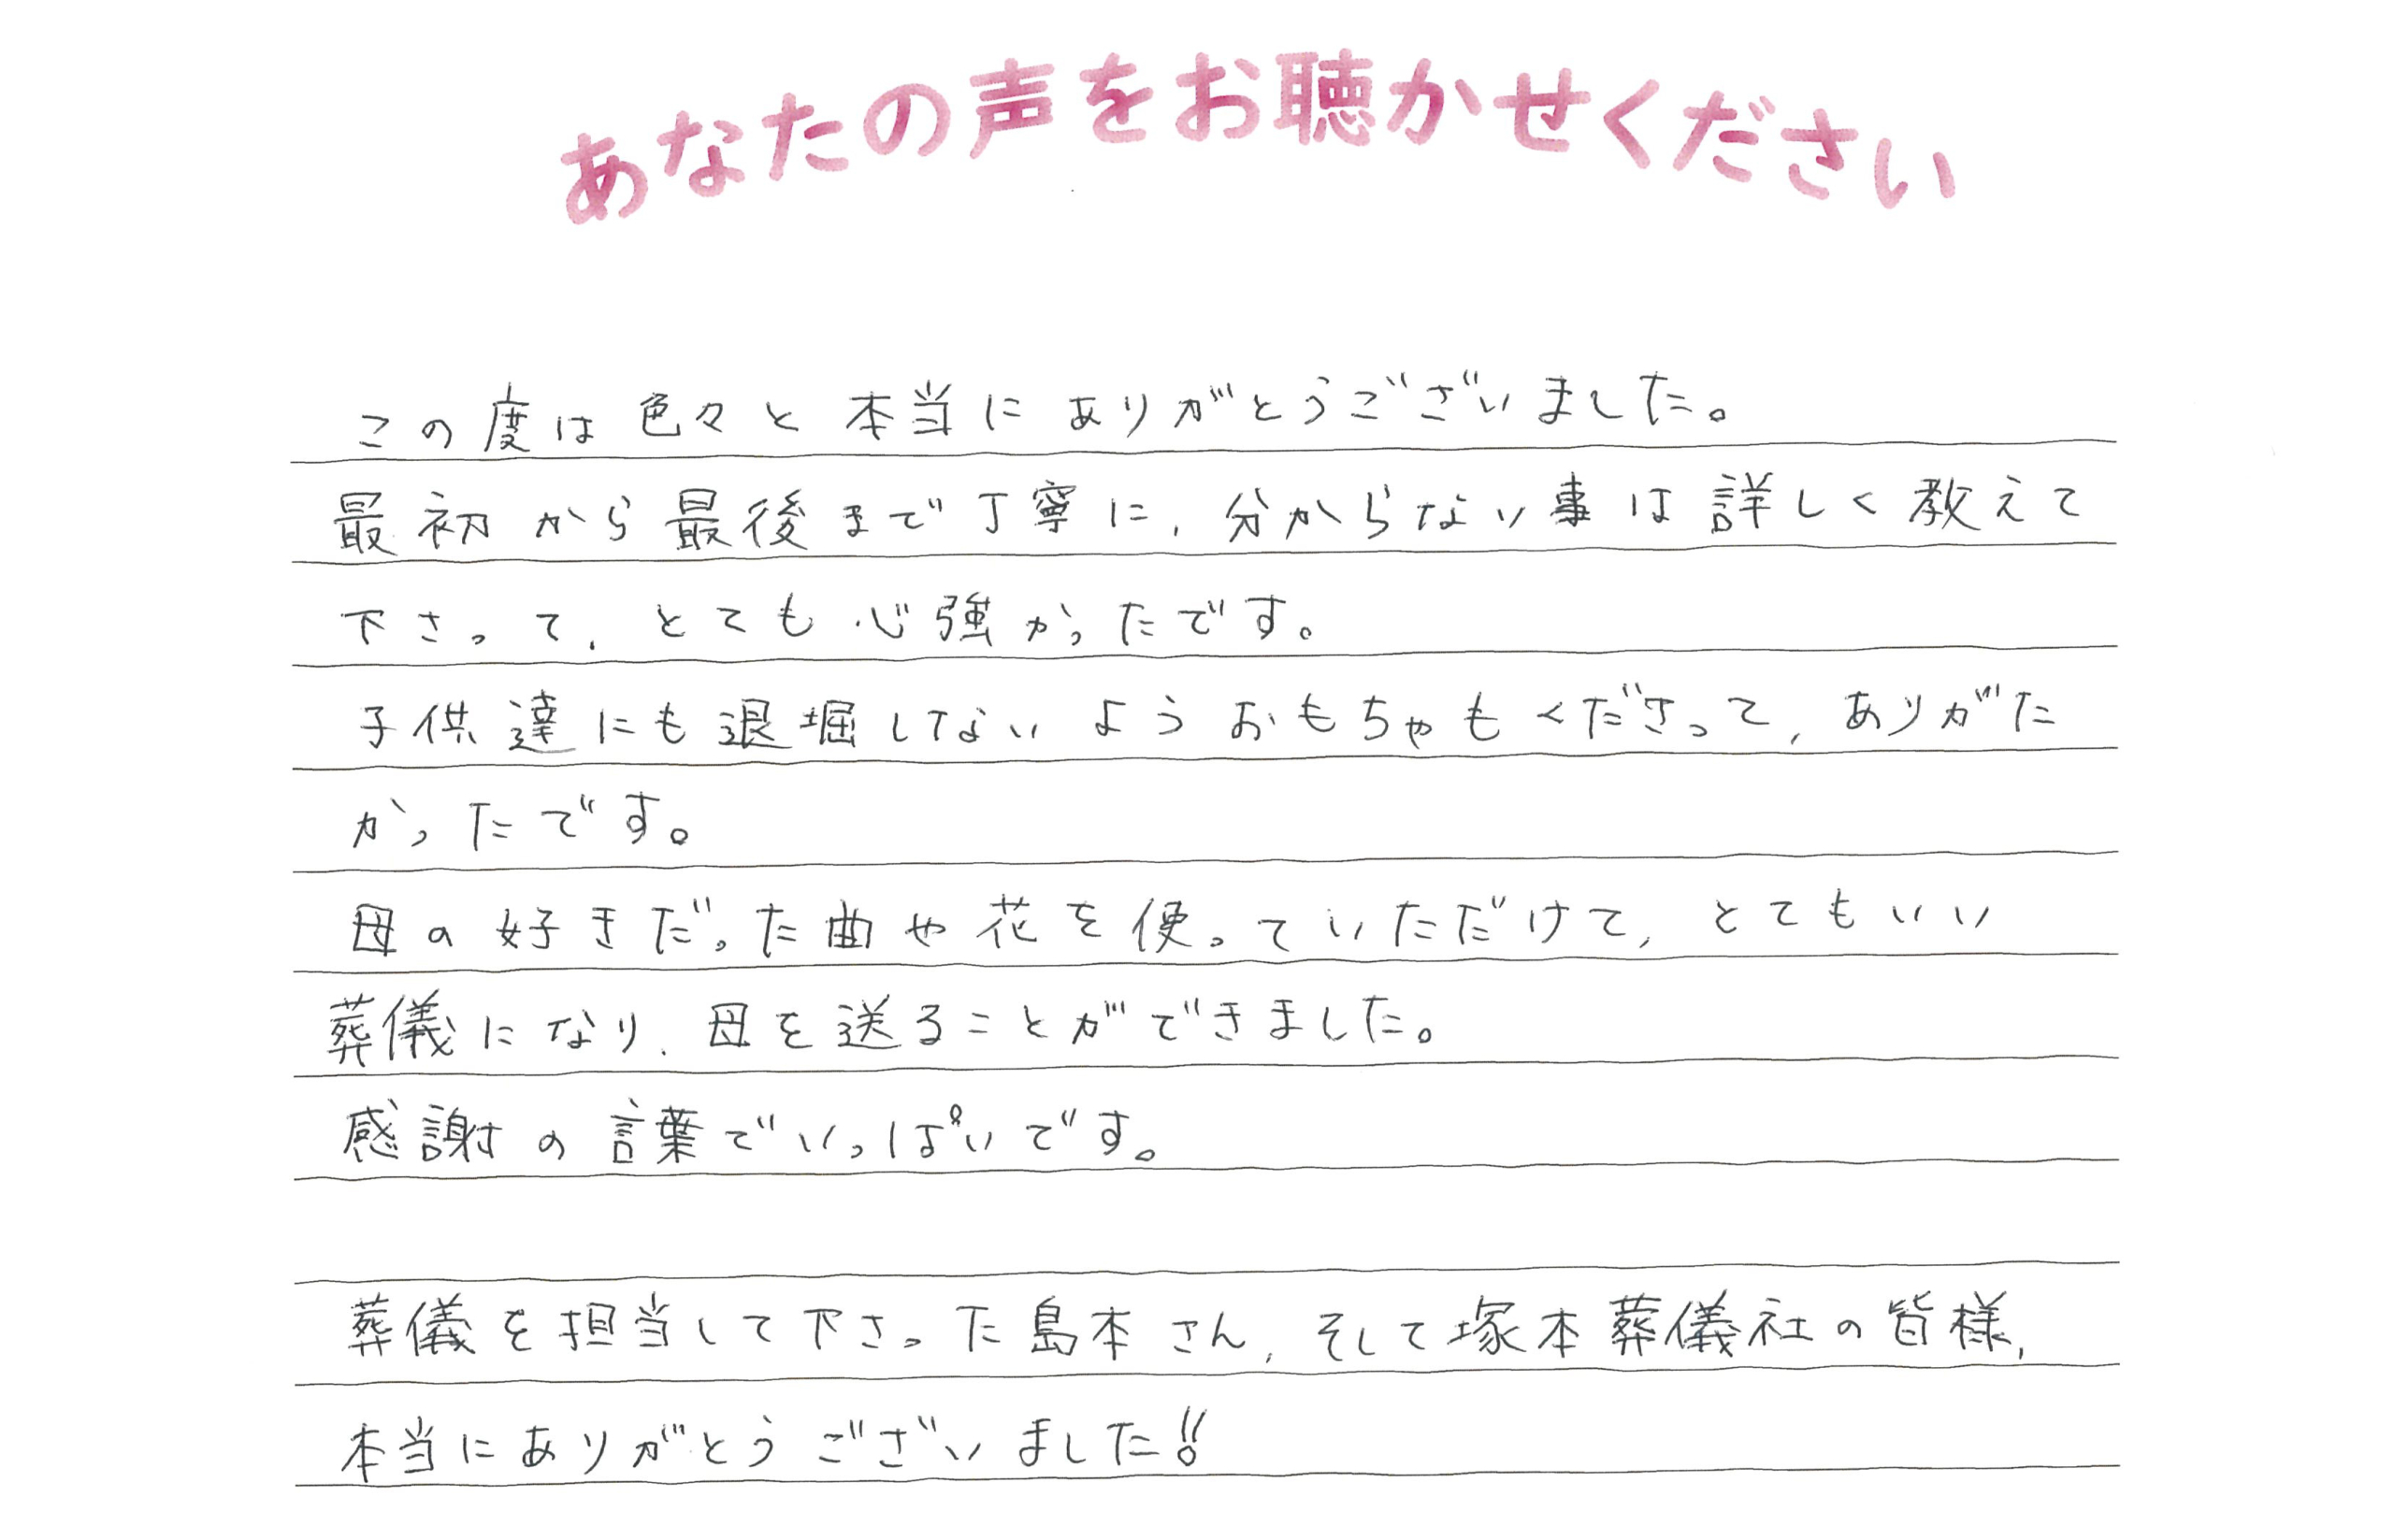 あなたの声をお聴かせください
この度は色々と本当にありがとうございました。
最初から最後まで丁寧に、分からない事は詳しく教えて
下さって、とても心強かったです。
子供達にも退堀しないようおもちゃもくださって、ありがた
かったです。
母の好きだった曲や花を使っていただけて、とてもいい
葬儀になり、母を送ることができました。
感謝の言葉でいっぱいです。
葬儀を担当して下さった島本さん、そして塚本葬儀社の皆様、
本当にありがとうございました!!